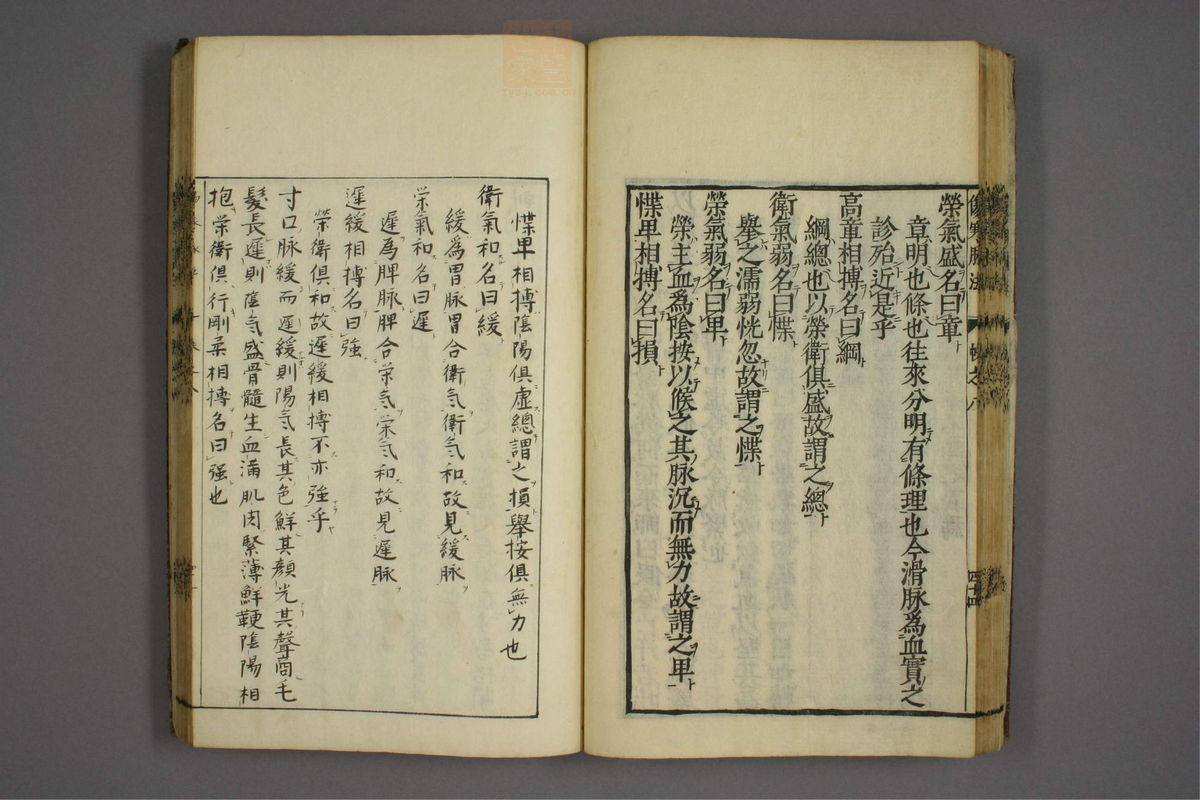 榮氣盛名曰章
章明也條也往來分明有條理也今滑脉爲血實之
診殆近是乎
高章相搏名曰綱
綱總也以榮衛俱盛故謂之總
衛氣弱名曰惵
舉之濡弱恍忽故謂之惵
榮氣弱名曰卑
榮主血爲陰按以候之其脉沉而無力故謂之卑
惵卑相搏名曰損
惵卑相搏陰陽俱虛總謂之損舉按俱無力也
衛氣和名曰緩
緩爲胃脉胃合衛气衛气和故見緩脉
栄氣和名曰遲
遲爲脾脉脾合栄气栄气和故見遲脉
遲緩相搏名曰強
榮衛俱和故遲緩相搏不亦強乎
寸口脉緩而遲緩則陽气長其色鮮其顏光其聲商毛
髮長遲則陰气盛骨髓生血滿肌肉緊薄鮮鞕陰陽相
抱栄衛俱行剛柔相搏名曰強也